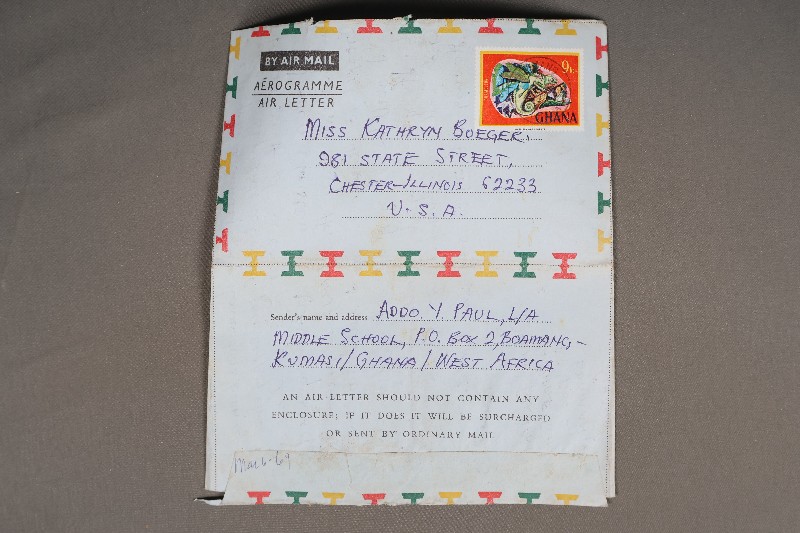 BY AIR MAIL
AÉROGRAMME
AIR LETTER
9
GHANA
MISS KATHRYN BOEGER,
981 STATE STREET,
CHESTER-ILLINOIS 62233
U.S.A.
Sender's name and address ADDO Y PAUL, L/A
MIDDLE SCHOOL, P.O. BOX 2, BOAMANG,-
KUMASI/GHANA/WEST AFRICA
AN AIR LETTER SHOULD NOT CONTAIN ANY
ENCLOSURE; IF IT DOES IT WILL BE SURCHARGED
OR SENT BY ORDINARY MAIL
Mar 6-69